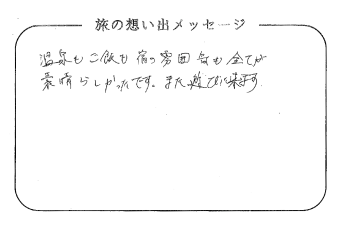 旅の想い出メッセージ
温泉もご飯も宿の雰囲気も全てが
素晴らしかったです。また遊びに来ます